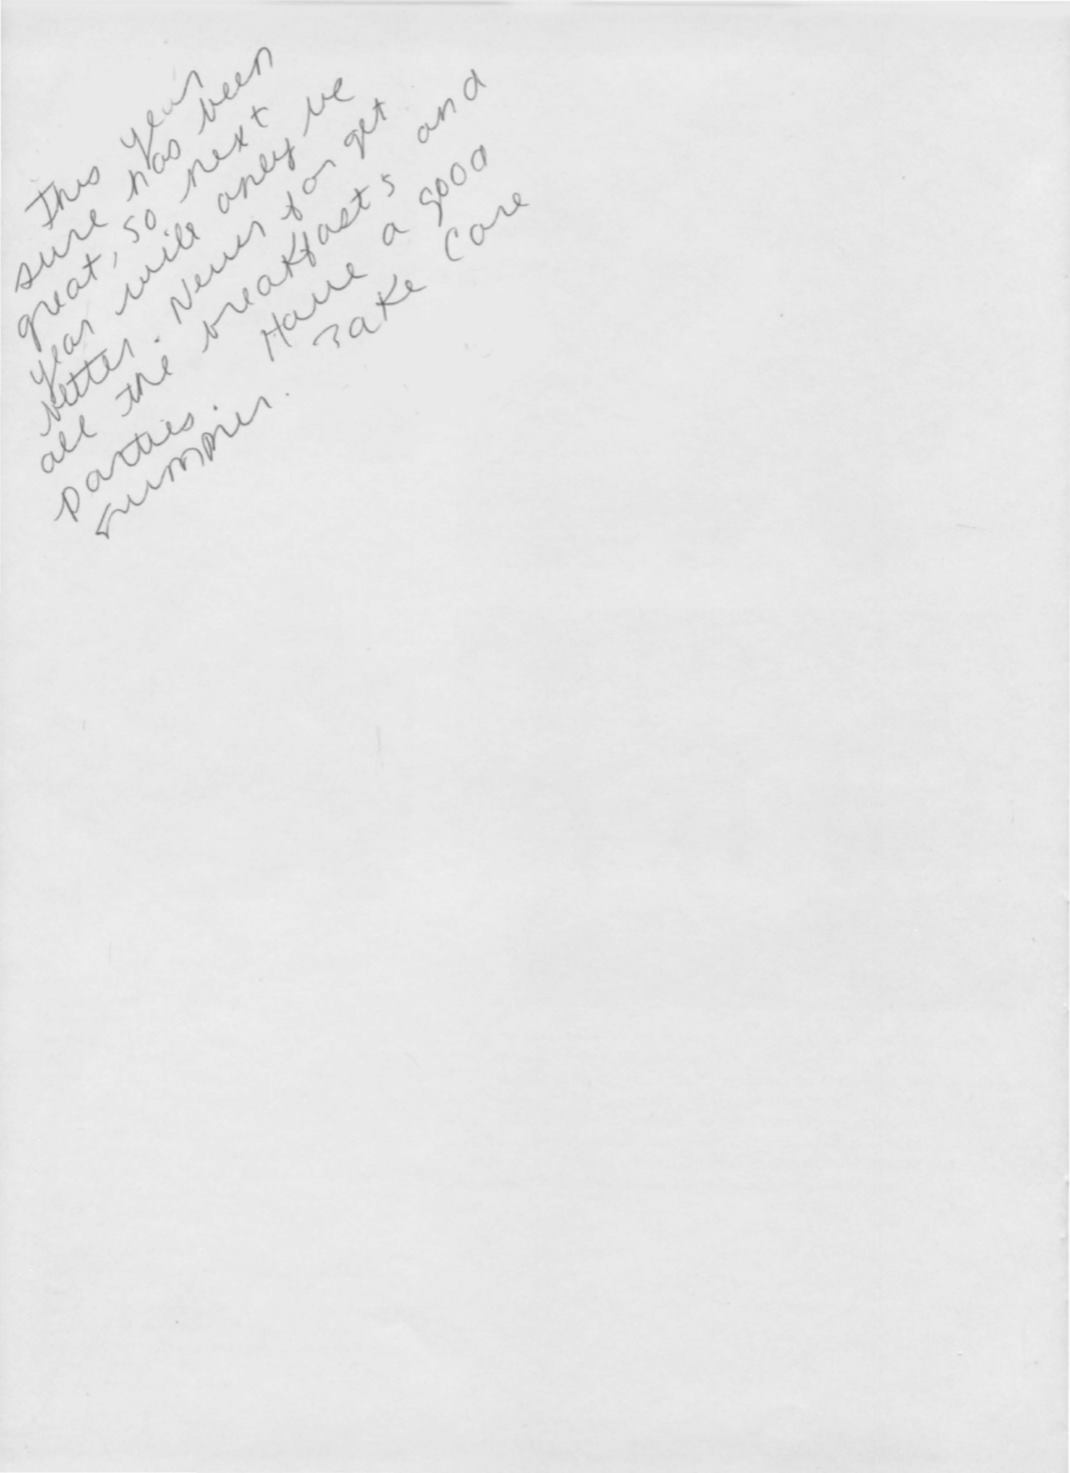 This year
sure has been
great, so next
year will only be
better. Never forget
all the breakfasts and
parties. Have a good
summer. Take Care